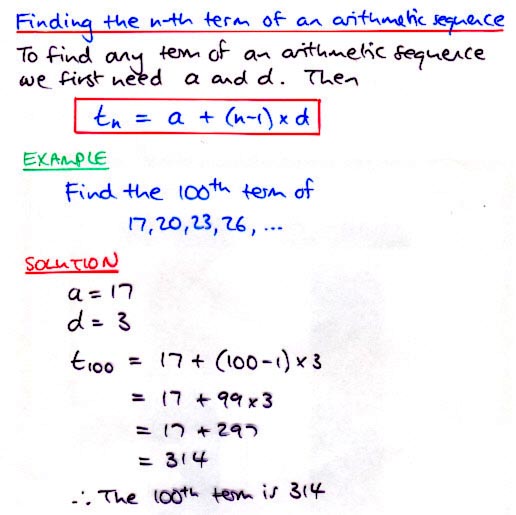 Finding the n-th term of an arithmetic sequence
To find any term of an arithmetic sequence
we first need a and d. Then
tn = a + (n-1) x d
EXAMPLE
Find the 100th term of
17, 20, 23, 26, ...
SOLUTION
a = 17
d = 3
t100 = 17 + (100-1) x 3
= 17 + 99 x 3
= 17 + 297
= 314
∴ The 100th term is 314